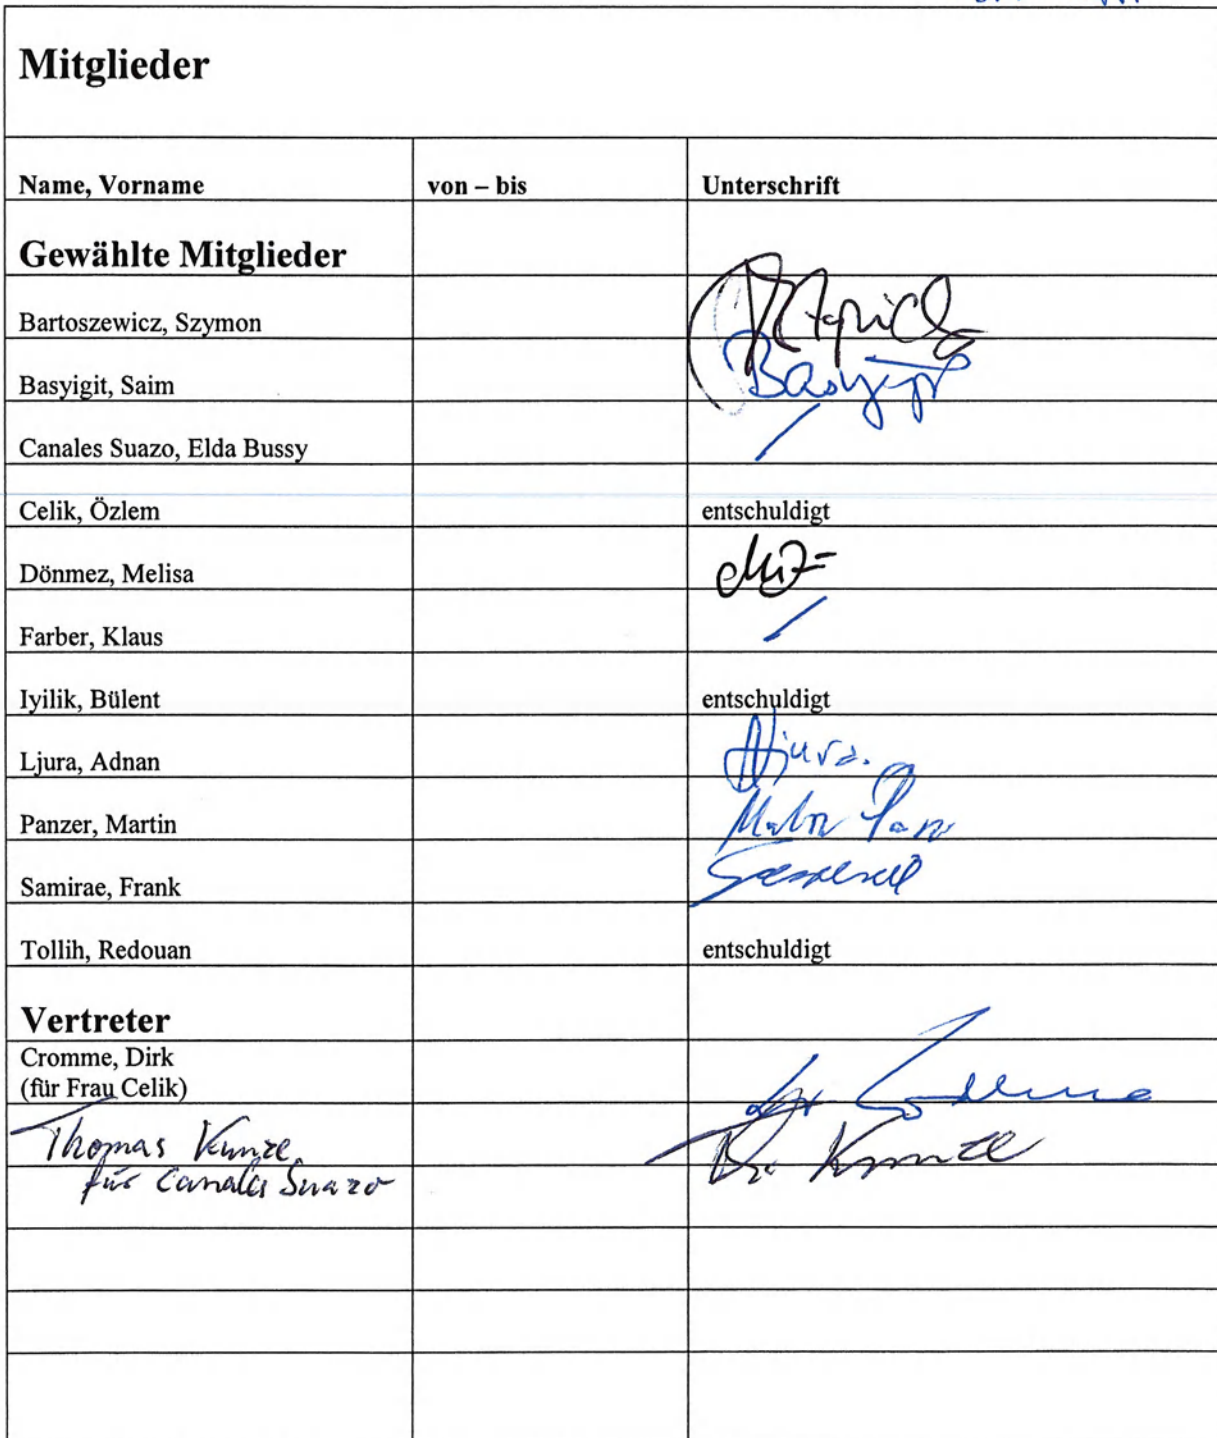 Mitglieder
Name, Vorname von – bis Unterschrift
Gewählte Mitglieder
Bartoszewicz, Szymon
Basyigit, Saim Basyigit
Canales Suazo, Elda Bussy /
Celik, Özlem entschuldigt
Dönmez, Melisa
Farber, Klaus /
Iyilik, Bülent entschuldigt
Ljura, Adnan Ljura.
Panzer, Martin Martin Panzer
Samirae, Frank
Tollih, Redouan entschuldigt
Vertreter
Cromme, Dirk
(für Frau Celik)
Thomas Kunze Kunze
für Canales Suazo